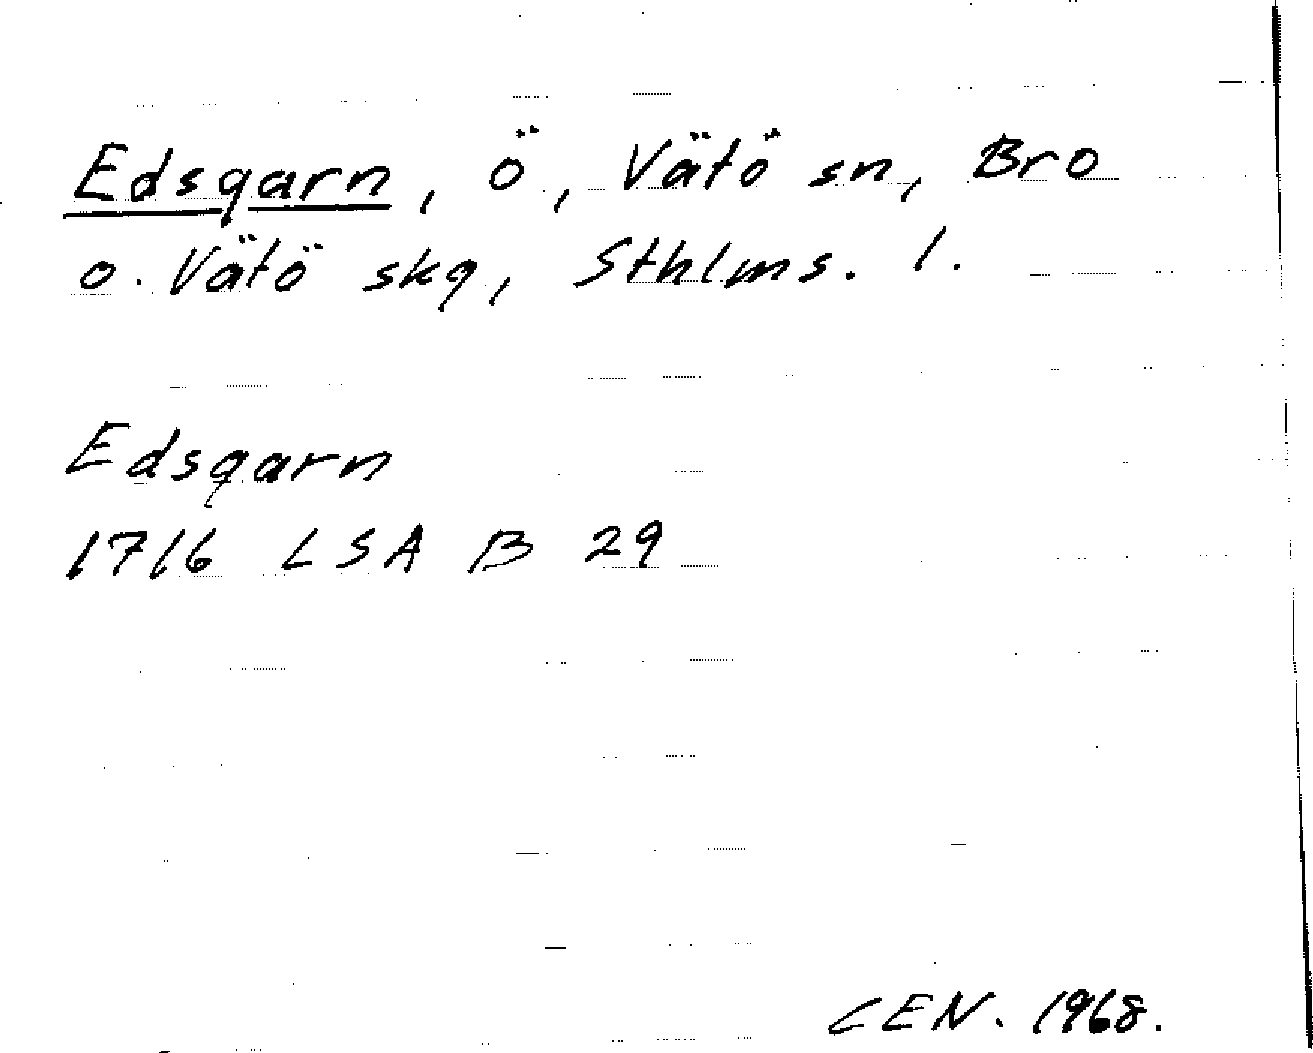 Edsgarn, ö, Vätö sn, Bro
o. Vätö skg, Sthlms. l.
Edsgarn
1716 LSA B 29
CEN. 1968.